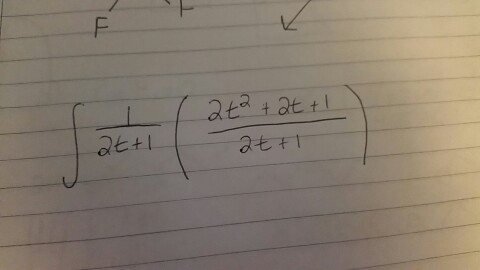 F F
∫ 1/(2t+1) ( (2t² + 2t + 1)/(2t + 1) )